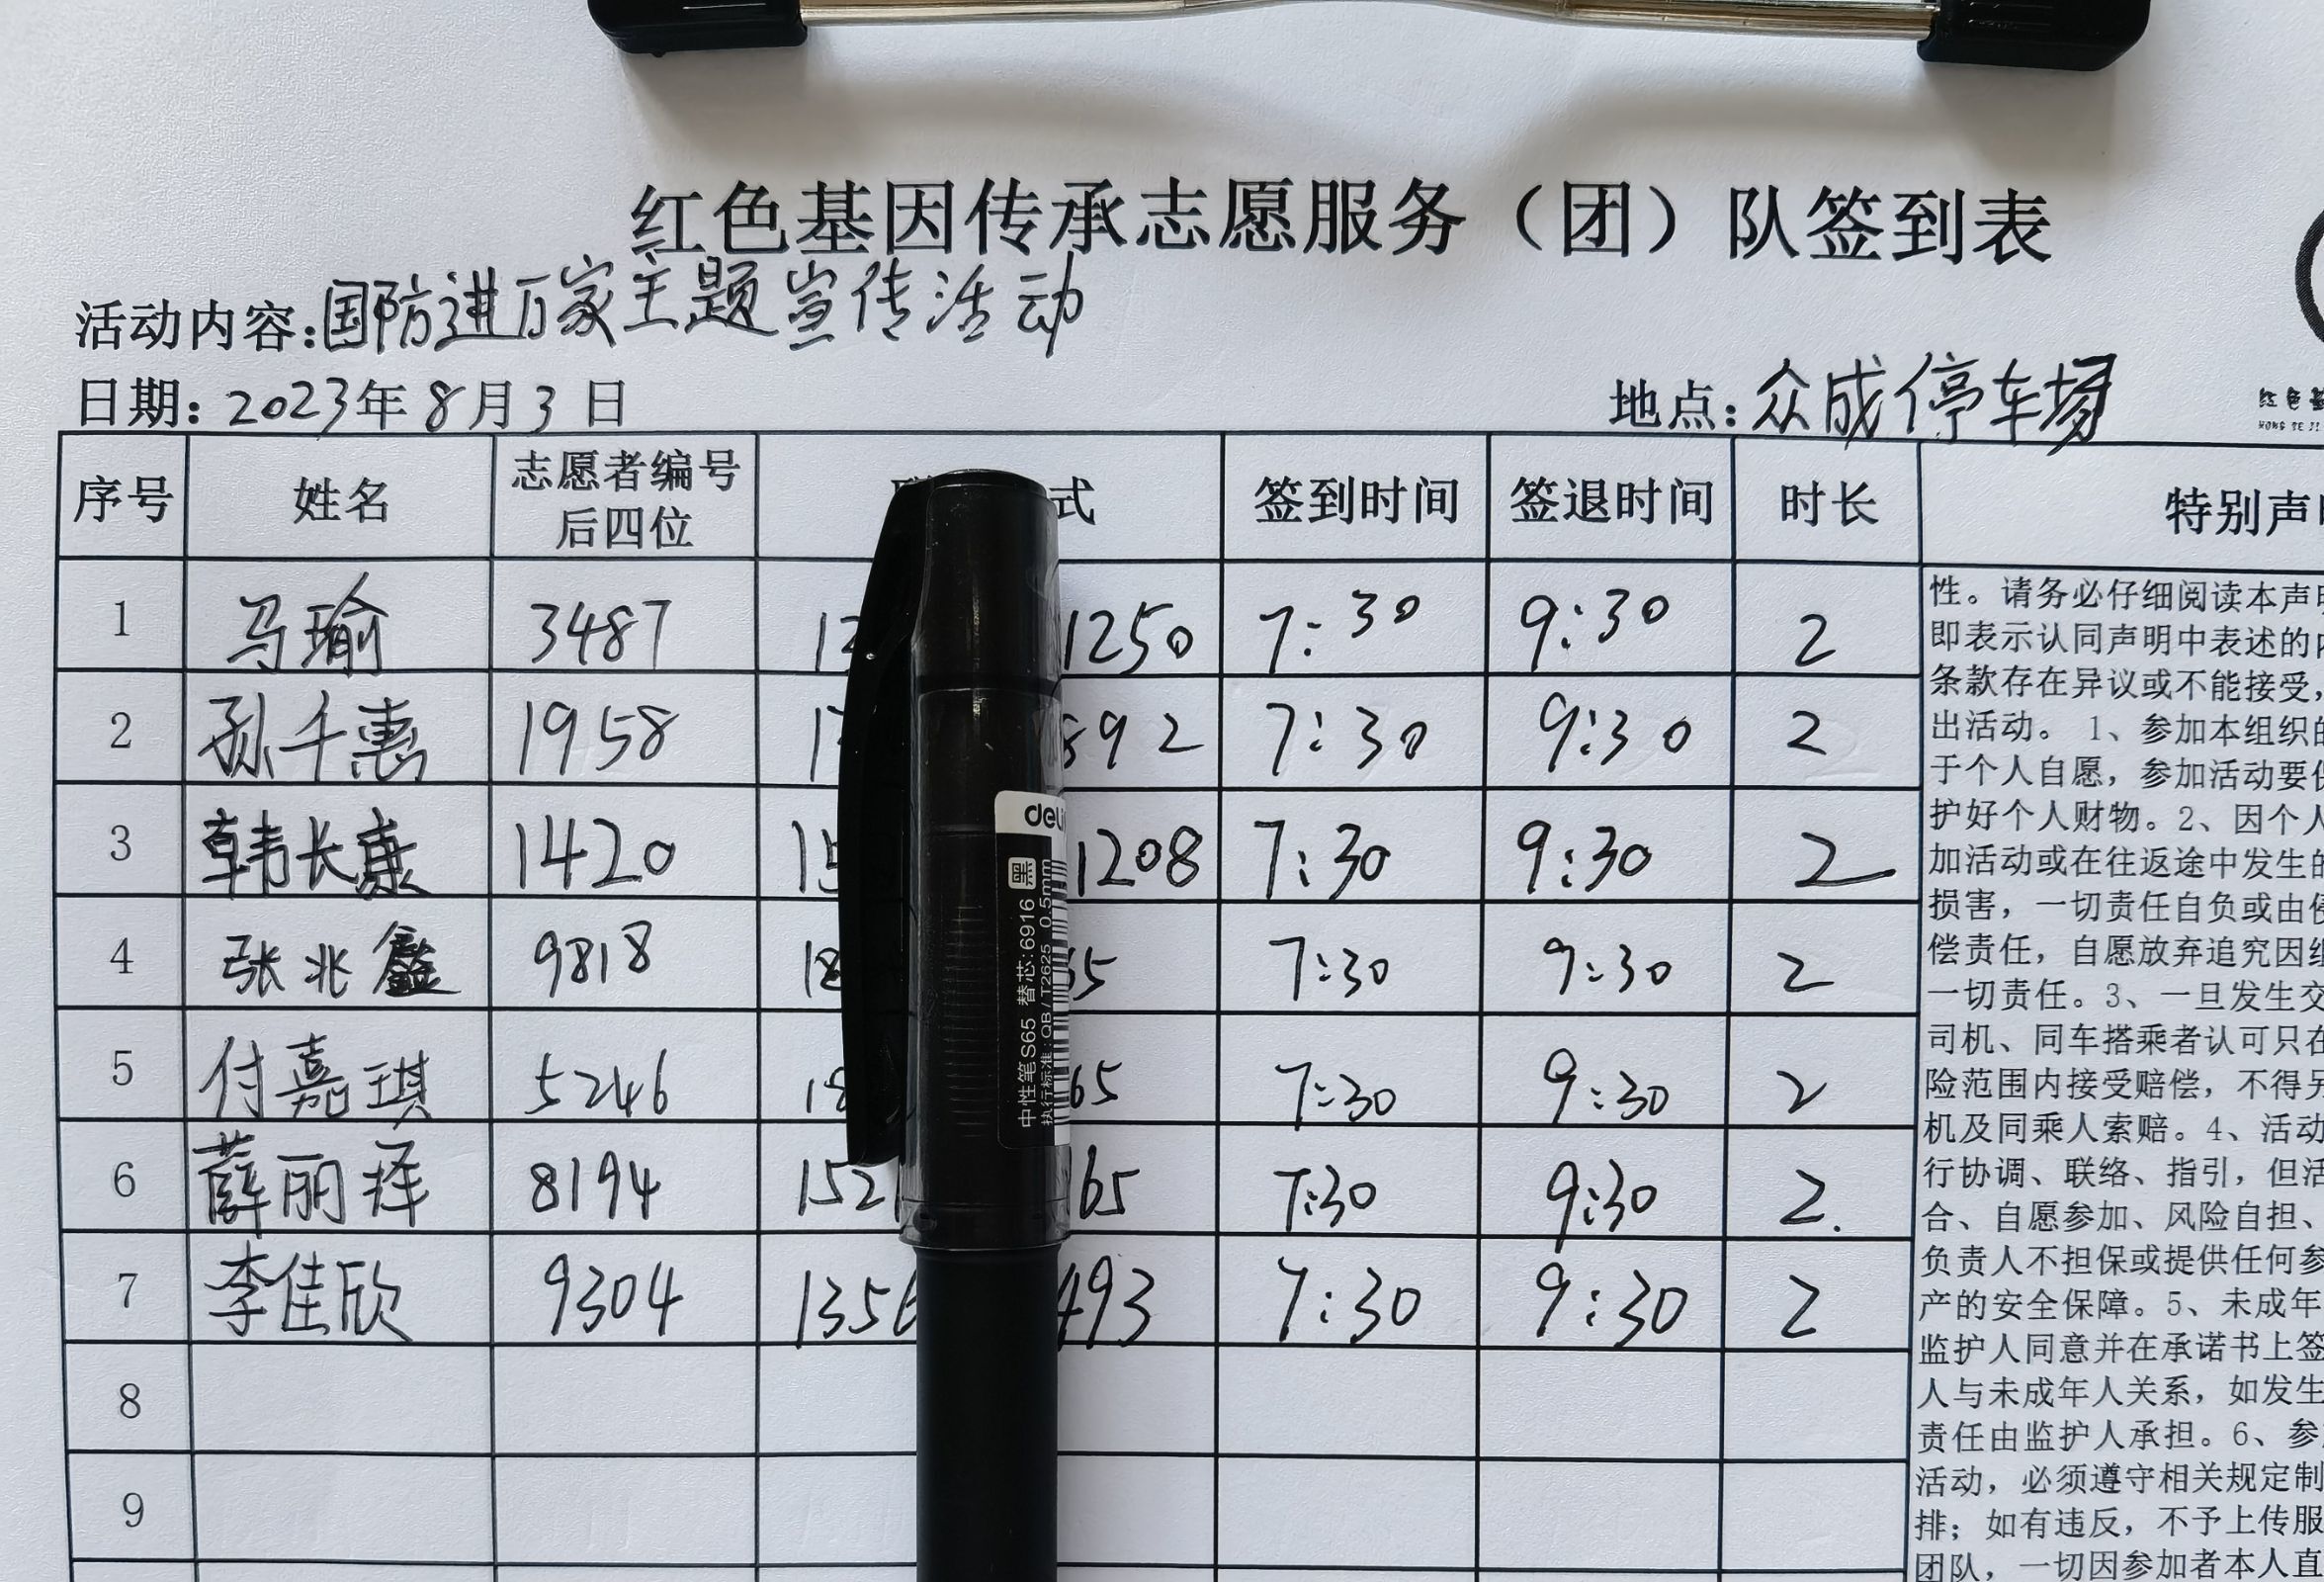 红色基因传承志愿服务（团）队签到表
活动内容:国防进万家主题宣传活动
日期: 2023年 8月 3 日 地点: 众成停车场
红色
HONG SE JI
序号 姓名 志愿者编号后四位 式 签到时间 签退时间 时长 特别声
1 马瑜 3487 1250 7:30 9:30 2
2 孙千惠 1958 892 7:30 9:30 2
3 韩长康 1420 15 1208 7:30 9:30 2
4 张兆鑫 9818 18 55 7:30 9:30 2
5 付嘉琪 5246 18 65 7:30 9:30 2
6 薛丽泽 8194 152 65 7:30 9:30 2.
7 李佳欣 9304 1356 493 7:30 9:30 2
8
9
性。请务必仔细阅读本声明
即表示认同声明中表述的内
条款存在异议或不能接受，
出活动。 1、参加本组织的
于个人自愿，参加活动要
护好个人财物。2、因个人
加活动或在往返途中发生的
损害，一切责任自负或由
偿责任，自愿放弃追究因组
一切责任。3、一旦发生交
司机、同车搭乘者认可只在
险范围内接受赔偿，不得另
机及同乘人索赔。4、活动
行协调、联络、指引，但活
合、自愿参加、风险自担、
负责人不担保或提供任何参
产的安全保障。5、未成年
监护人同意并在承诺书上签
人与未成年人关系，如发生
责任由监护人承担。6、参
活动，必须遵守相关规定制
排；如有违反，不予上传服
团队，一切因参加者本人直
deli
黑
中性笔S65 替芯:6916
执行标准: QB/T2625 0.5mm